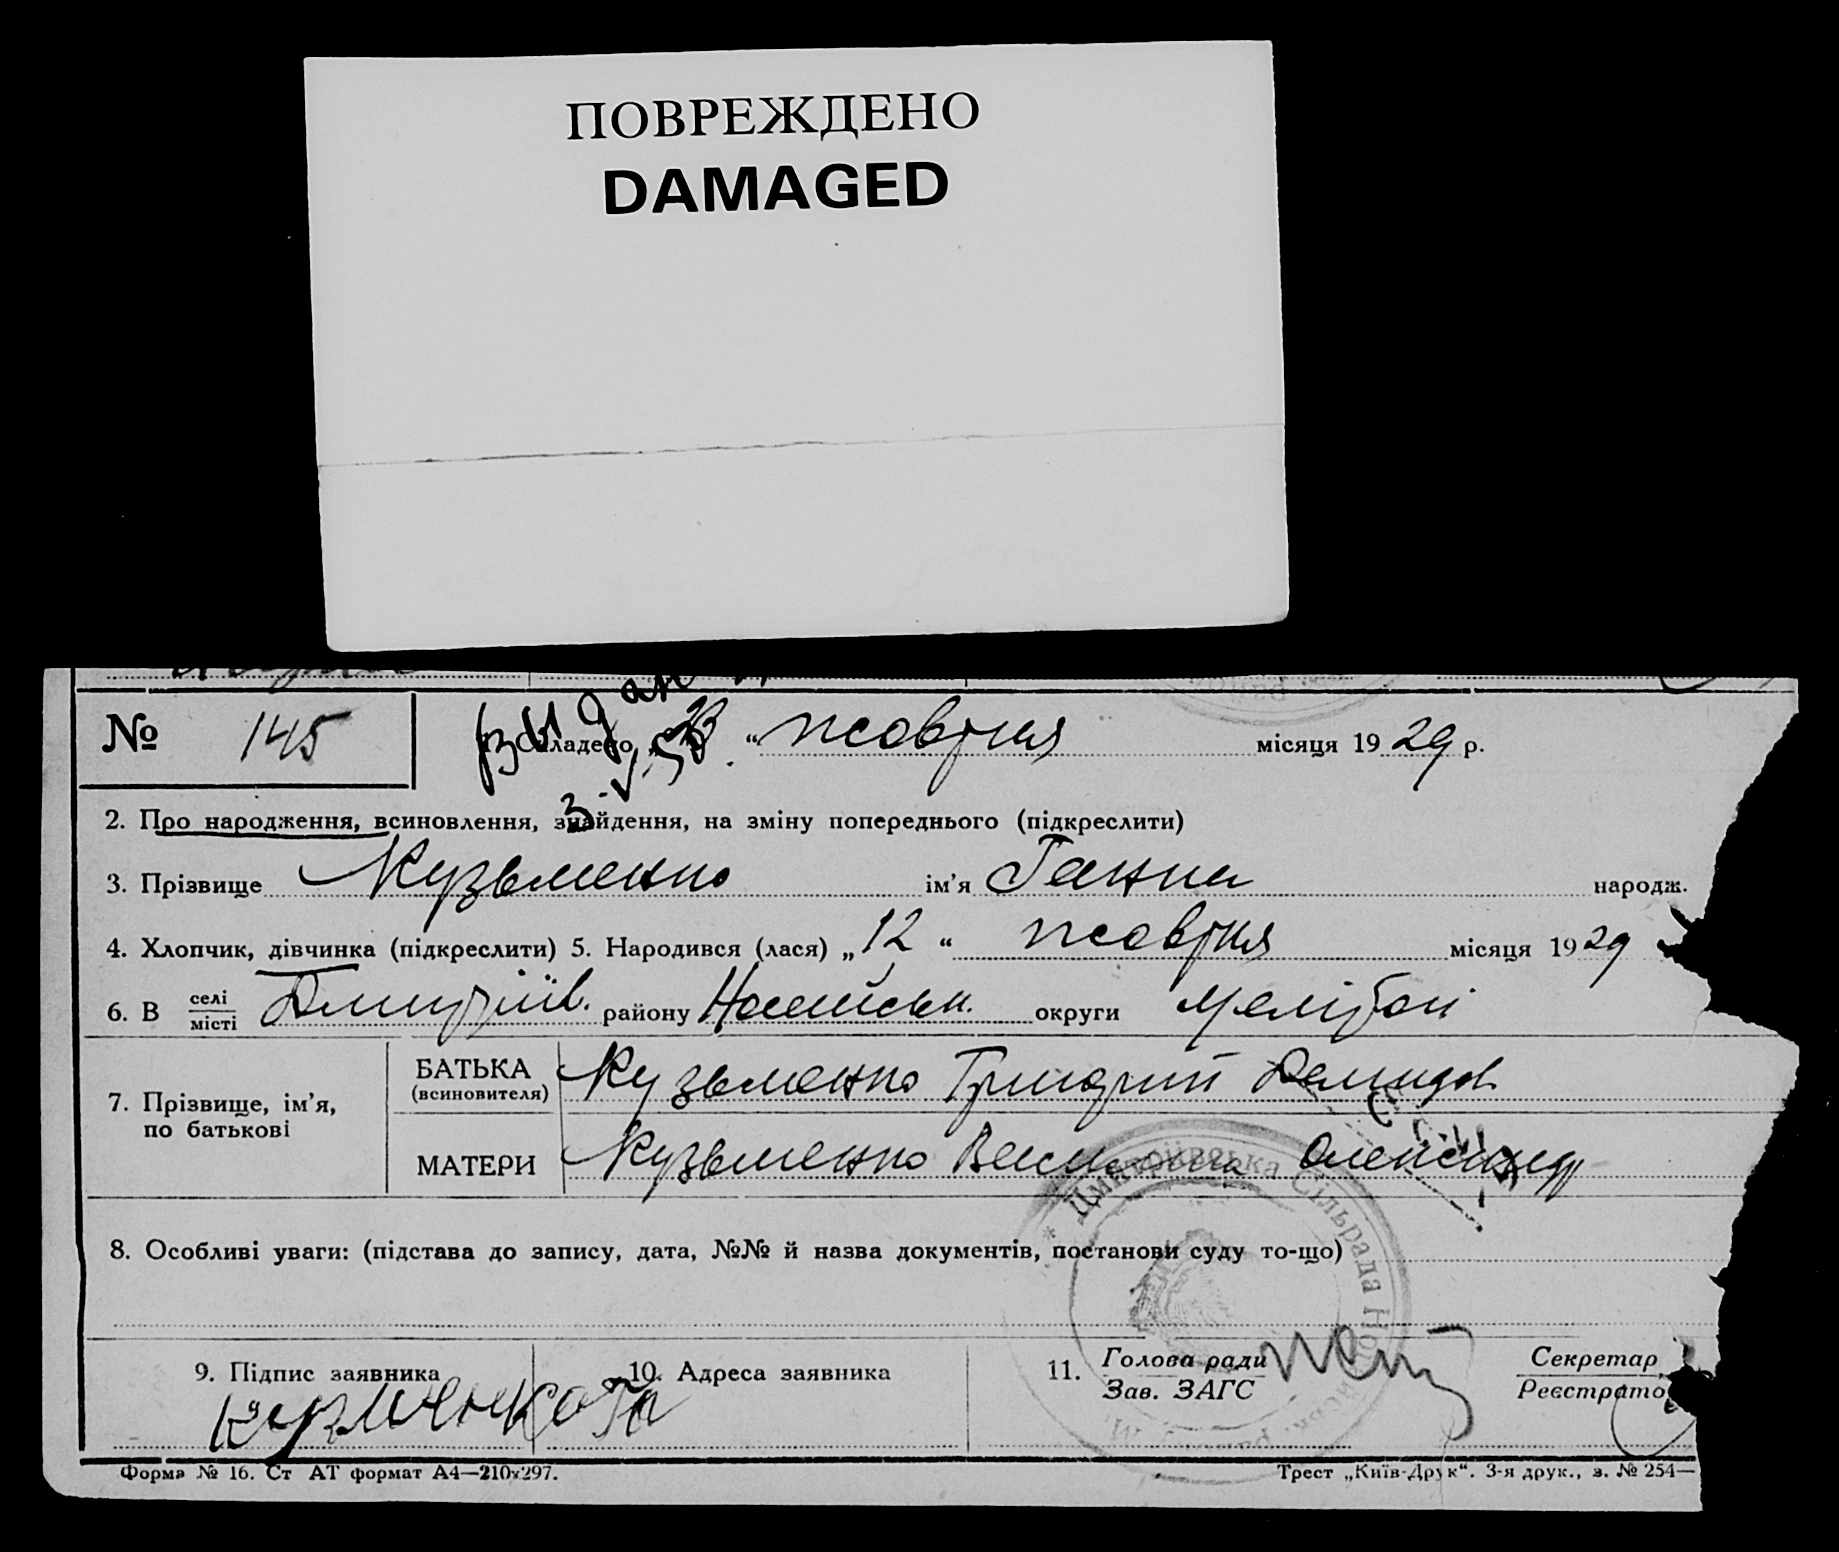 ПОВРЕЖДЕНО
DAMAGED
№ 145
1. Складено „23“ жовтня місяця 1929 р.
3-V-58.
2. Про народження, всиновлення, знайдення, на зміну попереднього (підкреслити)
3. Прізвище Кузьменко ім’я Ганна народж.
4. Хлопчик, дівчинка (підкреслити) 5. Народився (лася) „12“ жовтня місяця 1929
6. В селі місті Дмитріїв. району округи Мелітоп
7. Прізвище, ім’я, по батькові
БАТЬКА (всиновителя) Кузьменко Григорий Демидов
МАТЕРИ Кузьменко Олександр
8. Особливі уваги: (підстава до запису, дата, №№ й назва документів, постанови суду то-що)
Дмитріївська Сільрада
9. Підпис заявника 10. Адреса заявника 11. Голова ради Зав. ЗАГС Секретар Реєстрато
Форма № 16. Ст АТ формат А4—210х297. Трест „Київ-Друк“. 3-я друк., з. № 254—